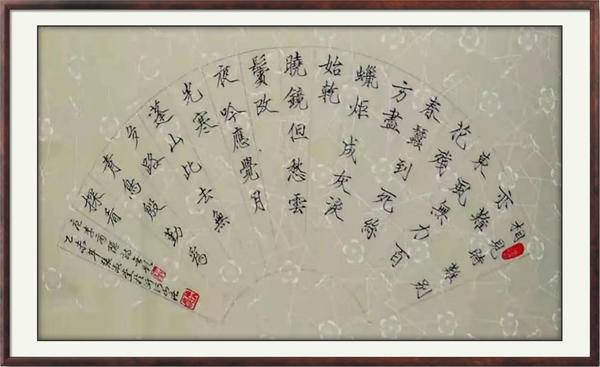 相見時難別
亦難
東風無力百
花殘
春蠶到死絲
方盡
蠟炬成灰淚
始乾
曉鏡但愁雲
鬢改
夜吟應覺月
光寒
蓬山此去無
多路
青鳥殷勤爲
探看
唐李商隱詩
乙巳年